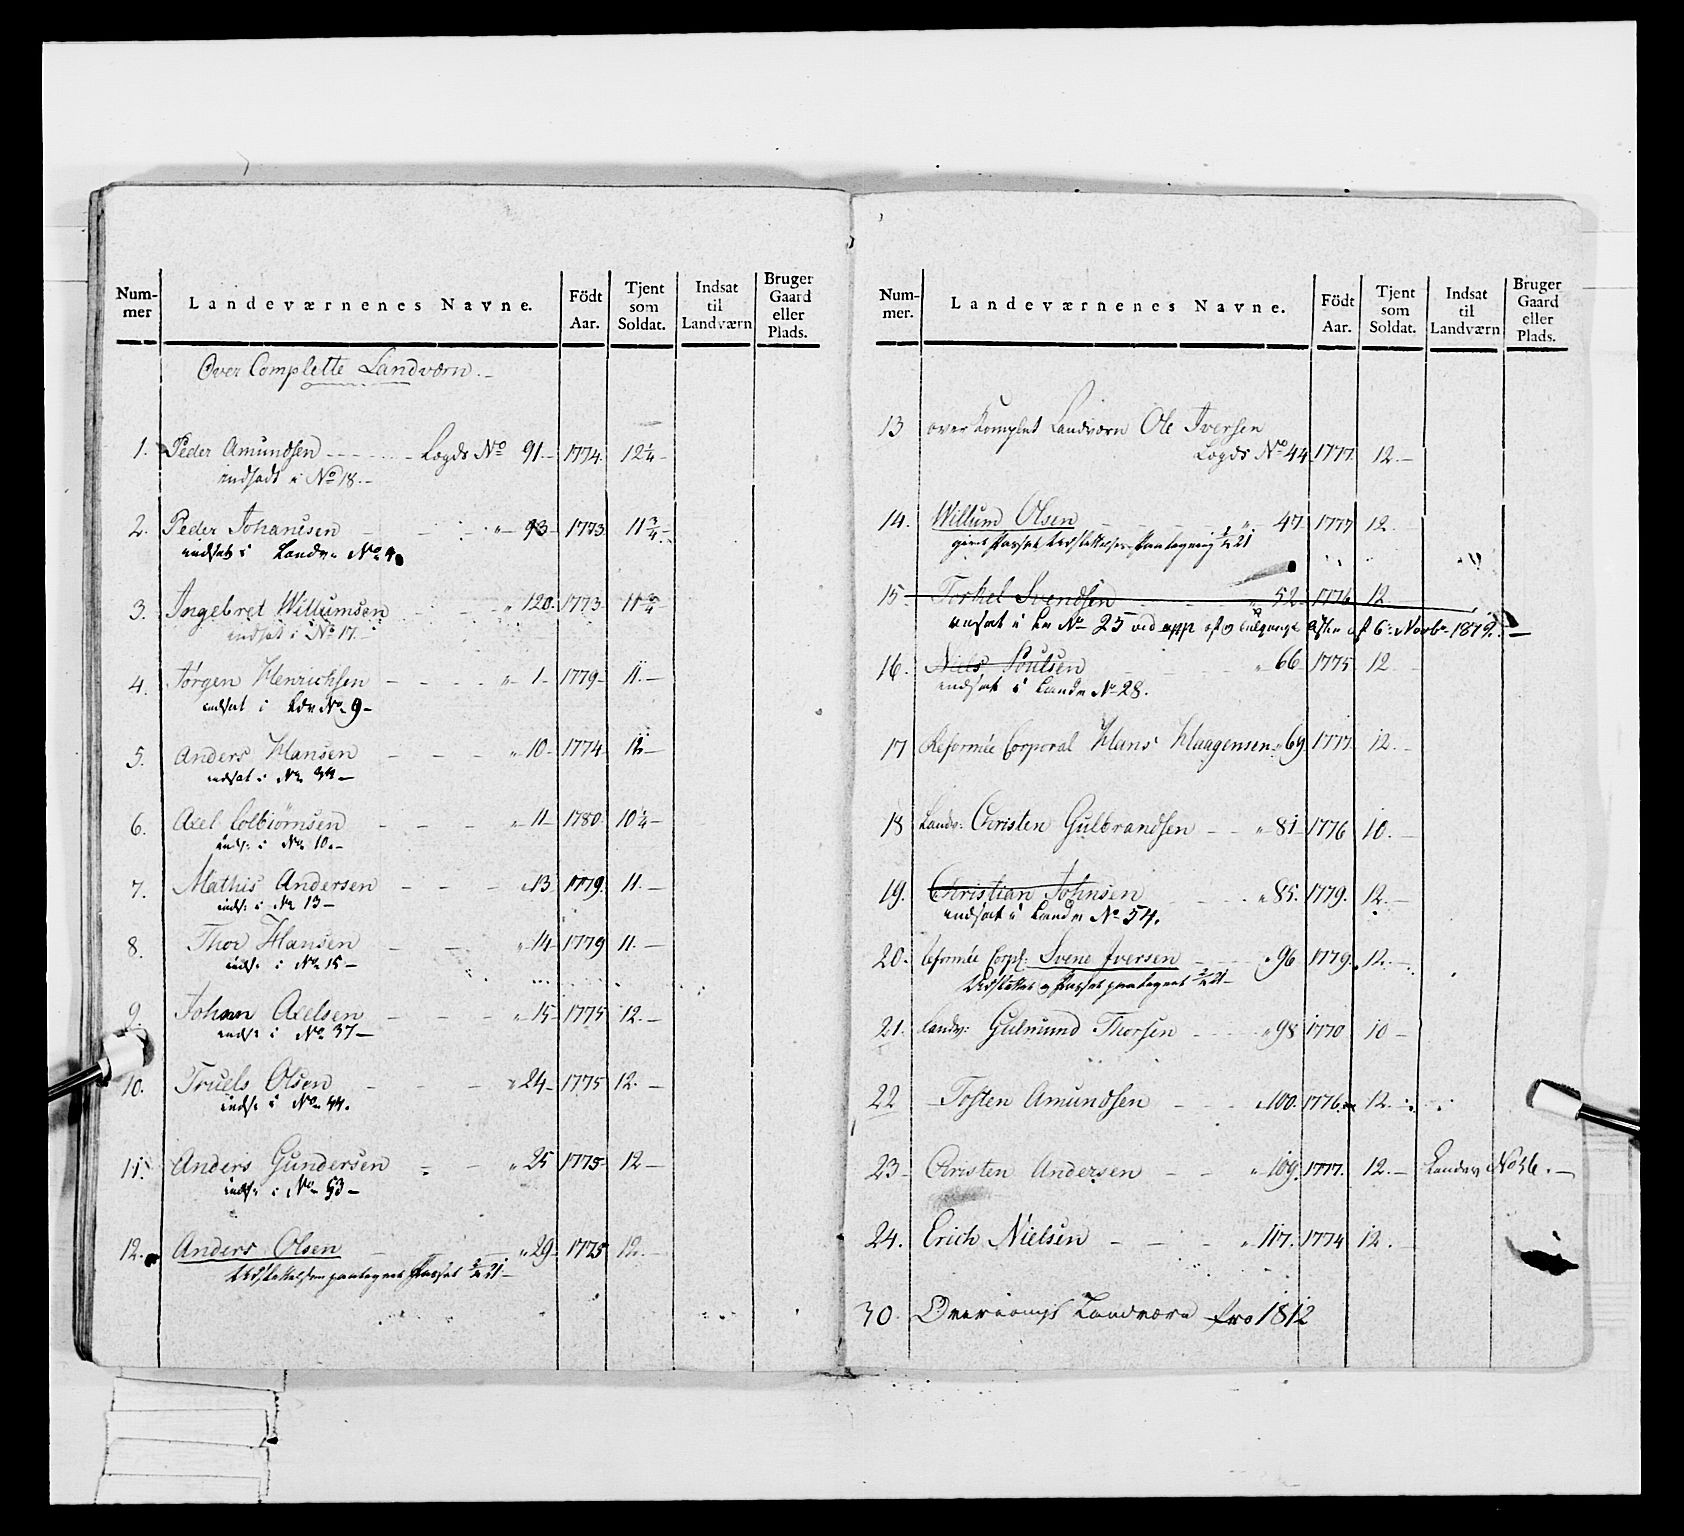 Num-
mer
Landeværnenes Navne.
Födt
Aar.
Tjent
som
Soldat.
Indsat
til
Landværn
Bruger
Gaard
eller
Plads.
Over Complette Landværn.-
1. Peder Amundsen - - - - Lægds No 91.- 1774. 12¼-
indsadt i No 18.-
2. Peder Johansen - - - „ 93- 1773 11¾-
indsat i Landv. No 4
3. Ingebret Willumsen - - „ 120- 1773- 11¾-
indsat i No 17.
4. Jørgen Henrichsen - - - - „ 1- 1779- 11.-
indsat i Ldv No 9-
5. Anders Hansen - - - „ 10- 1774
indsat i No 44-
6. Axel Colbiørnsen - - - „ 11- 1780 10¼-
inds: i No 10.-
7. Mathis Andersen - - - „ 13- 1779. 11.-
inds: i No 13-
8. Thor Hansen - - „ 14- 1779 11.-
inds: i No 15-
9. Johan Axelsen - - - „ 15- 1775 12.-
inds: i No 37-
10. Truels Olsen - - - „ 24- 1775 12.-
inds: i No 44.
11. Anders Gundersen - - „ 25 1775- 12-
inds: i No 53-
12. Anders Olsen - „ 29- 1775 12.-
Udslettelsen paategnet Passet
Num-
mer.
Landeværnenes Navne.
Födt
Aar.
Tjent
som
Soldat.
Indsat
til
Landværn
Bruger
Gaard
eller
Plads.
13 over Komplet Landværn Ole Iversen
Lægds No 44 1777 12.-
14. Willum Olsen „ 47. 1777 12.-
15- Torkel Svendsen - - „ 52. 1776 12.-
indsat i Lv No 25 ved app
16. Niels Poulsen „ 66 1775 12
indsat i Landv No 28.
17 Reformée Corporal Hans Haagensen „ 69. 1777. 12.-
18 Landv: Christen Gulbrandsen - - „ 81- 1776 10.-
19. Christian Johnsen - - - „ 85. 1779. 12.-
indsat i Landv No 54.
20. reformée Corpl: Svene Iversen - - „ 96 1779. 12.-
Udslettet og Passet paategnet
21. Landv: Gulmund Thorsen - - - „ 98 1770 10-
22 Tosten Amundsen - - - „ 100. 1776. 12.-
23- Christen Andersen - - „ 109. 1777. 12.- Landev No 56.-
24. Erich Nielsen - - - „ 117. 1774 12.-
30. Overcompl Landværn fro 1812